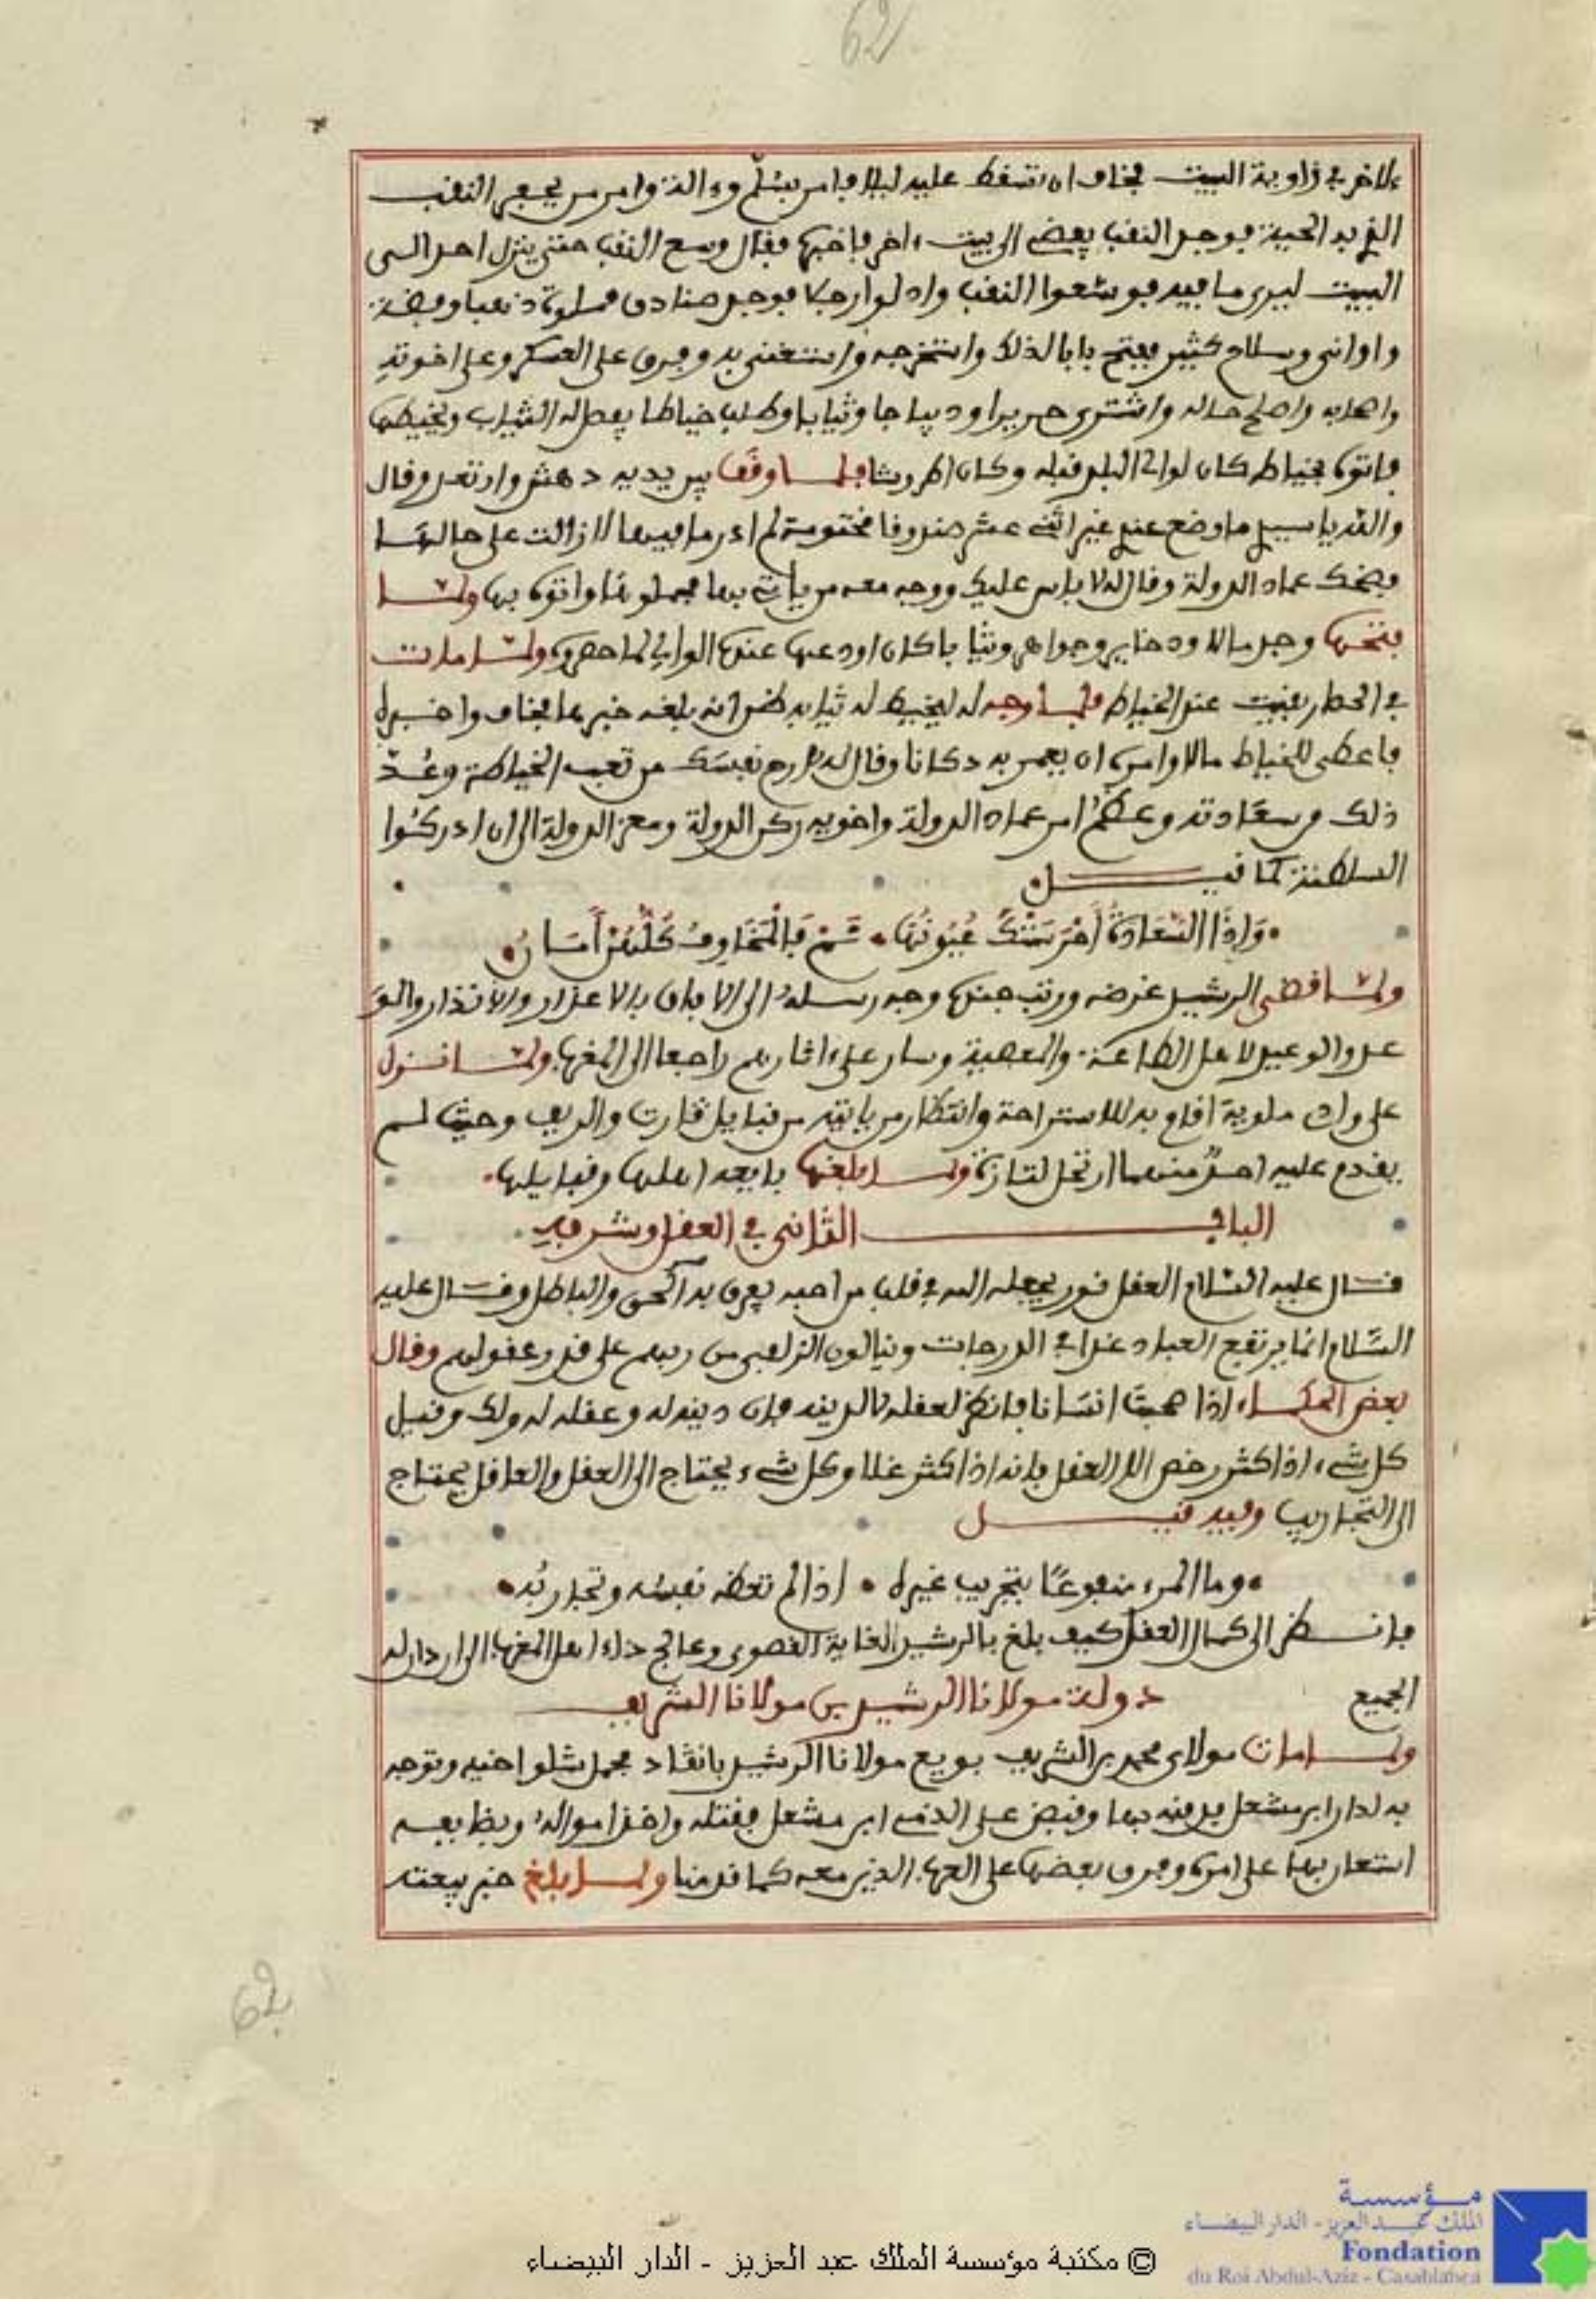 62
الاخر في زاوية البيت فخاف ان تسقط عليه ليلا فامر بسلم وءالة وامر من يحفر النقب
الذي به الحية فوجد النقب يفضي الى بيت ءاخر فاخبره فقال وسع النقب حتى ينزل احد الى
البيت ليرى ما فيه فوسعوا النقب وادلوا رجلا فوجد صنادق مملوة ذهبا وفضة
واواني وسلاح كثير ففتح بابا لذلك واستخرجه واستغنى به وفرق على العسكر وعلى اخوته
واصحابه واصلح حاله واشترى حريرا وديباجا وثيابا وطلب خياطا يفصل له الثياب ويخيطها
فاتوه بخياط كان لوالي البلد قبله وكان اطروشا فلما وقف بين يديه دهش وارتعد وقال
والله يا سيدي ما وضع عندي غير اثنى عشر صندوقا مختومة لم ادر ما فيها لازالت على حالها
فضحك عماد الدولة وقال له لا باس عليك ووجه معه من ياتي بها فحملوها واتوه بها ولما
فتحها وجد مالا وذخاير وجواهر وثيابا كان اودعها عنده الوالي لما حصروه ولما مات
في الحصار بقيت عند الخياط فلما وجه له ليخيط له ثيابه ظن انه بلغه خبرها فخاف واخبره
فاعطى للخياط مالا وامره ان يعمر به دكانا وقال له ارح نفسك من تعب الخياطة وعد
ذلك من سعادته وعظم امر عماد الدولة واخويه ركن الدولة ومعز الدولة الى ان ادركوا
السلطنة كما قيل
وَإِذَا السَّعَادَةُ أَحْرَسَتْكَ عُيُونُهَا • نَمْ فَالْمَخَاوِفُ كُلُّهُنَّ أَمَانُ
ولما قضى الرشيد غرضه ورتب جنده وجه رسله الى الافاق بالاعذار والانذار والو
عد والوعيد لاهل الطاعة والمعصية وسار على اثارهم راجعا الى المغرب ولما نزل
على واد ملوية اقام به للاستراحة وانتظار من ياتيه من قبايل ڭارت والريف وحيث لم
يقدم عليه احد منهما ارتحل لتازة ولما بلغها بايعه اهلها وقبايلها
الباب الثاني في العقل وشرفه
قال عليه السلام العقل نور يجعله الله في قلب من احبه يعرف به الحق والباطل وقال عليه
السلام انما يرتفع العباد غدا في الدرجات وينالون الزلفى من ربهم على قدر عقولهم وقال
بعض الحكماء اذا صحبت انسانا فانظر لعقله لا لدينه فان دينه له وعقله له ولك وقيل
كل شيء اذا كثر رخص الا العقل فانه اذا كثر غلا وكل شيء يحتاج الى العقل والعاقل يحتاج
الى التجاريب وفيه قيل
وما المرء منفوعًا بتجريب غيره • اذا لم تعظه نفسه وتجاربه
فانظر الى كمال العقل كيف بلغ بالرشيد الغاية القصوى وعالج داء اهل المغرب الى ان دان له
الجميع دولة مولانا الرشيد بن مولانا الشريف
ولما مات مولاي محمد بن الشريف بويع مولانا الرشيد بانڭاد فحمل شلو اخيه وتوجه
به لدار ابن مشعل فدفنه بها وقبض على الذمي ابن مشعل فقتله واخذ امواله وبضايعه
استعان بها على امره وفرق بعضها على العرب الذين معه كما قدمنا ولما بلغ خبر بيعته
62
مؤسسة
الملك عبد العزيز - الدار البيضاء
Fondation
du Roi Abdul-Aziz - Casablanca
© مكتبة مؤسسة الملك عبد العزيز - الدار البيضاء